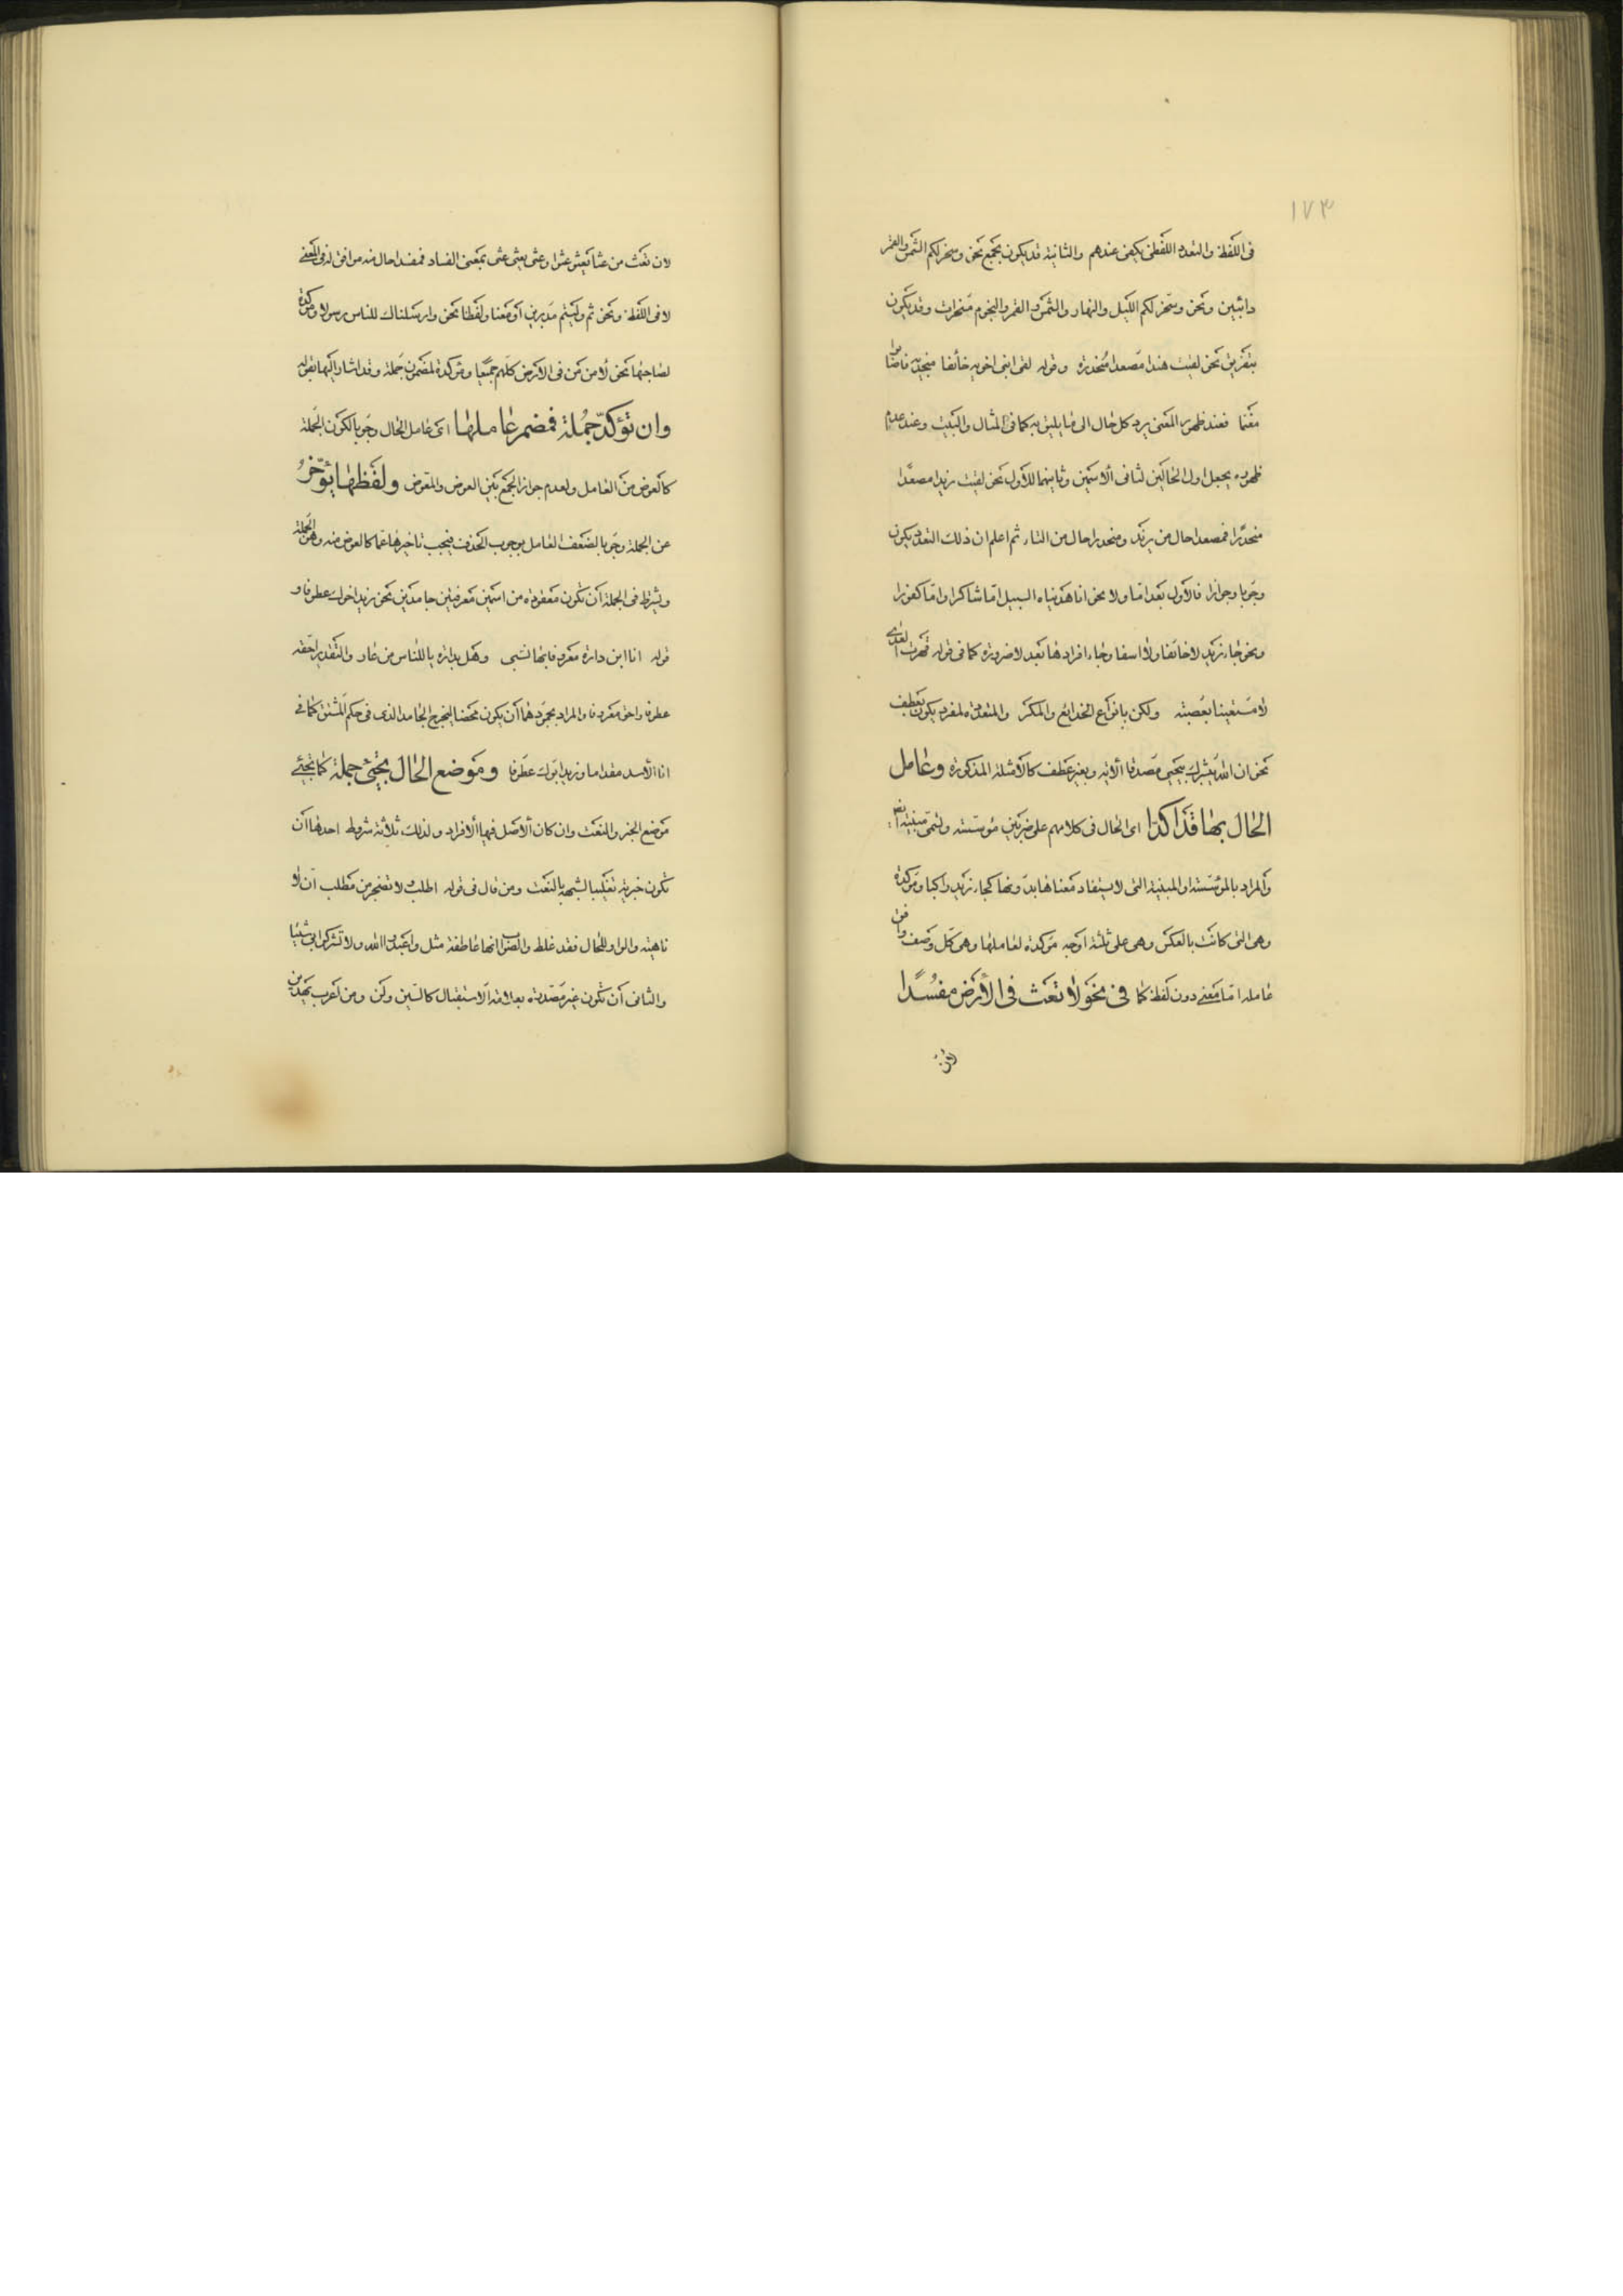 ١٧٣
فى اللفظ والتعدد اللفظى يكفى عندهم والثانية قد يكون بجمع نحو وسخر لكم الشمس والقمر
دائبين ونحو وسخر لكم الليل والنهار والشمس والقمر والنجوم مسخرات وقد يكون
بتفريق نحو لقيت هندا مصعدا منحدرة وقوله لقى ابنى اخويه خائفا منجديه فاصابوا
مغنما فعند ظهور المعنى يرد كل حال الى ما يليق به كما فى المثال والبيت وعند عدم
ظهوره يجعل اول الحالين لثانى الاسمين وثانيهما للاول نحو لقيت زيدا مصعدا
منحدرا فمصعدا حال من زيد ومنحدرا حال من التاء ثم اعلم ان ذلك التعدد يكون
وجوبا وجوازا فالاول بعد اما ولا نحو انا هديناه السبيل اما شاكرا واما كفورا
ونحو جاء زيد لا خائفا ولا اسفا وجاء افرادها بعد لا ضرورة كما فى قوله قهرت العدى
لا مستعينا بعصبة ولكن بانواع الخدائع والمكر والمتعدد لمفرد يكون بعطف
نحو ان الله يبشرك بيحيى مصدقا الاية وبغير عطف كالامثلة المذكورة وعامل
الحال بها قد اكدا اى الحال فى كلامهم على ضربين مؤسسة وتسمى مبينة ايضا
والمراد بالمؤسسة او المبينة التى لا يستفاد معناها بدونها كجاء زيد راكبا ومؤكدة
وهى التى كانت بالعكس وهى على ثلثة اوجه مؤكدة لعاملها وهى كل وصف وافق
عامله اما معنى دون لفظ كما فى نحو لا تعث فى الارض مفسدا
لان
لان تعث من عثا يعثو عثوا وعثى يعثى عثى بمعنى الفساد فمفسدا حال منه موافق له فى المعنى
لا فى اللفظ ونحو ثم وليتم مدبرين او معنا ولفظا نحو وارسلناك للناس رسولا ومؤكدة
لصاحبها نحو لامن من فى الارض كلهم جميعا ومؤكدة لمضمون جملة وقد اشار اليها بقوله
وان تؤكد جملة فمضمر عاملها اى عامل الحال وجوبا لكون الجملة
كالعوض من العامل ولعدم جواز الجمع بين العوض والمعوض ولفظها يؤخر
عن الجملة وجوبا لضعف العامل بوجوب الحذف فيجب تاخيرها عما كالعوض منه وهو الجملة
ويشترط فى الجملة ان تكون معقودة من اسمين معرفتين جامدين نحو زيد اخوك عطوفا و
قوله انا ابن دارة معروفا بها نسبى وهل بدارة يا للناس من عار والتقدير احقه
عطوفا واحق معروفا والمراد بجمودهما ان يكون محضا ليخرج الجامد الذى فى حكم المشتق كما فى
انا الاسد مقداما وزيد ابوك عطوفا وموضع الحال يجيئ جملة كما تجيئ
موضع الخبر والنعت وان كان الاصل فيها الافراد ولذلك ثلاثة شروط احدها ان
تكون خبرية تغليبا لشبهه بالنعت ومن قال فى قوله اطلب ولا تضجر من مطلب ان لا
ناهية والواو للحال فقد غلط والصواب انها عاطفة مثل واعبدوا الله ولا تشركوا به شيئا
والثانى ان تكون غير مصدرة بعلامة الاستقبال كالسين ولن ومن اعرب سيهدين